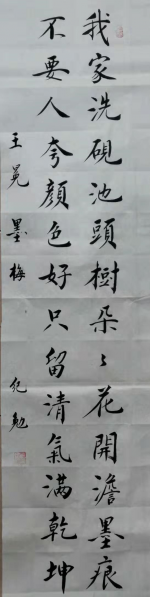 我家洗硯池頭樹朵〻花開澹墨痕
不要人夸顏色好只留清氣滿乾坤
王冕 墨梅 紀勉